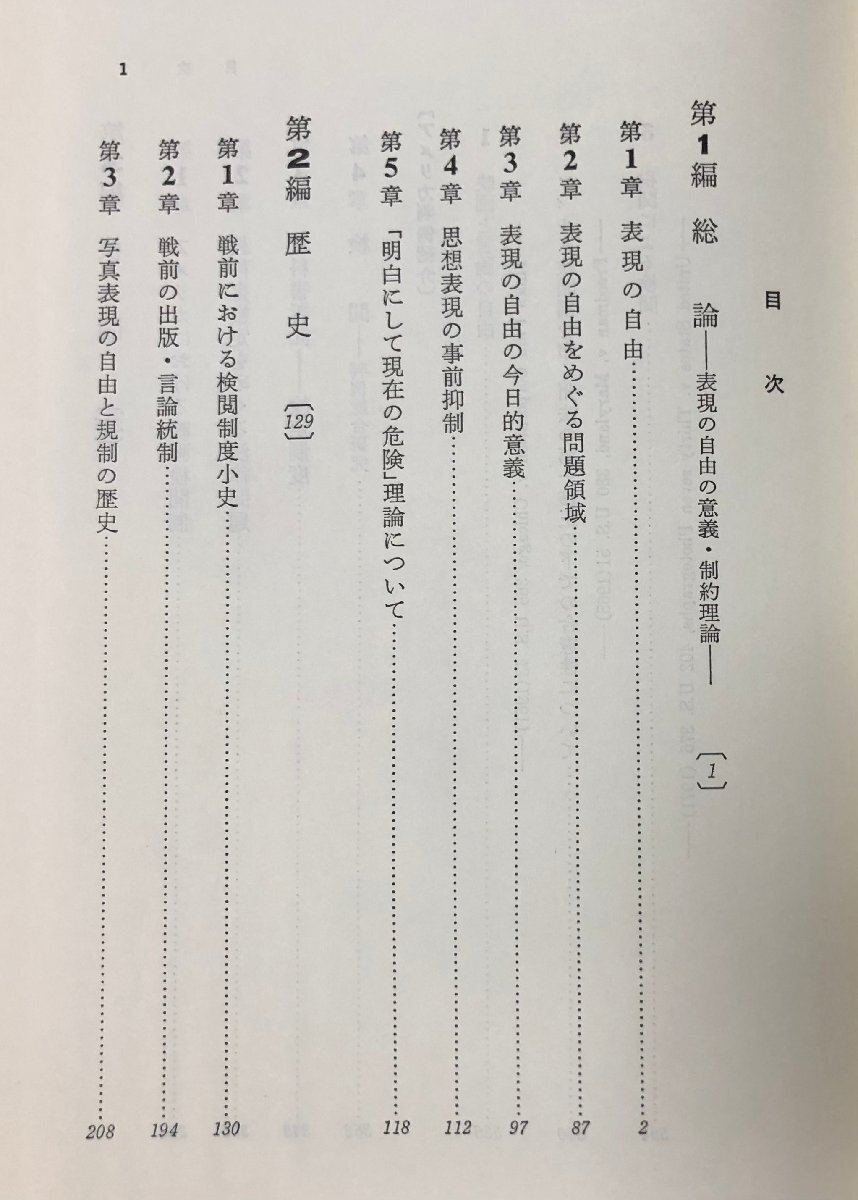 目次
第1編 総論――表現の自由の意義・制約理論――〔1〕
第1章 表現の自由……2
第2章 表現の自由をめぐる問題領域……87
第3章 表現の自由の今日的意義……97
第4章 思想表現の事前抑制……112
第5章 「明白にして現在の危険」理論について……118
第2編 歴史〔129〕
第1章 戦前における検閲制度小史……130
第2章 戦前の出版・言論統制……194
第3章 写真表現の自由と規制の歴史……208
1